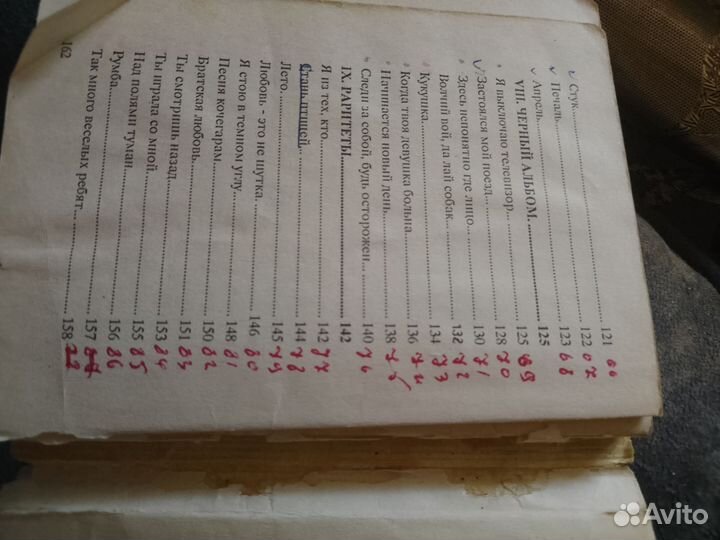 Стук 121 66
Печаль 122 67
Апрель 123 68
VIII. ЧЕРНЫЙ АЛЬБОМ. 125
Я выключаю телевизор 125 69
Застоялся мой поезд 128 70
Здесь непонятно где лицо 130 71
Волчий вой, да лай собак 132 72
Кукушка 134 73
Когда твоя девушка больна 136 74
Начинается новый день 138
Следи за собой, будь осторожен 140 76
IX. РАРИТЕТЫ. 142
Я из тех, кто 142 77
Стань птицей 144 78
Лето 145 79
Любовь - это не шутка 146 80
Я стою в темном углу 148 81
Песня кочегарам 150 82
Братская любовь 151 83
Ты смотришь назад 153 84
Ты играла со мной 155 85
Над полями туман 156 86
Румба 157
Так много веселых ребят 158
162
Avito